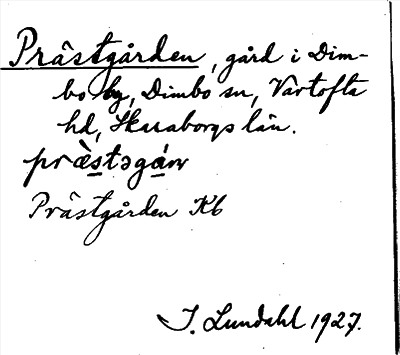 Prästgården, gård i Dim-
bo by, Dimbo sn, Vartofta
hd, Skaraborgs län.
Prästgården Kb
I. Lundahl 1927.